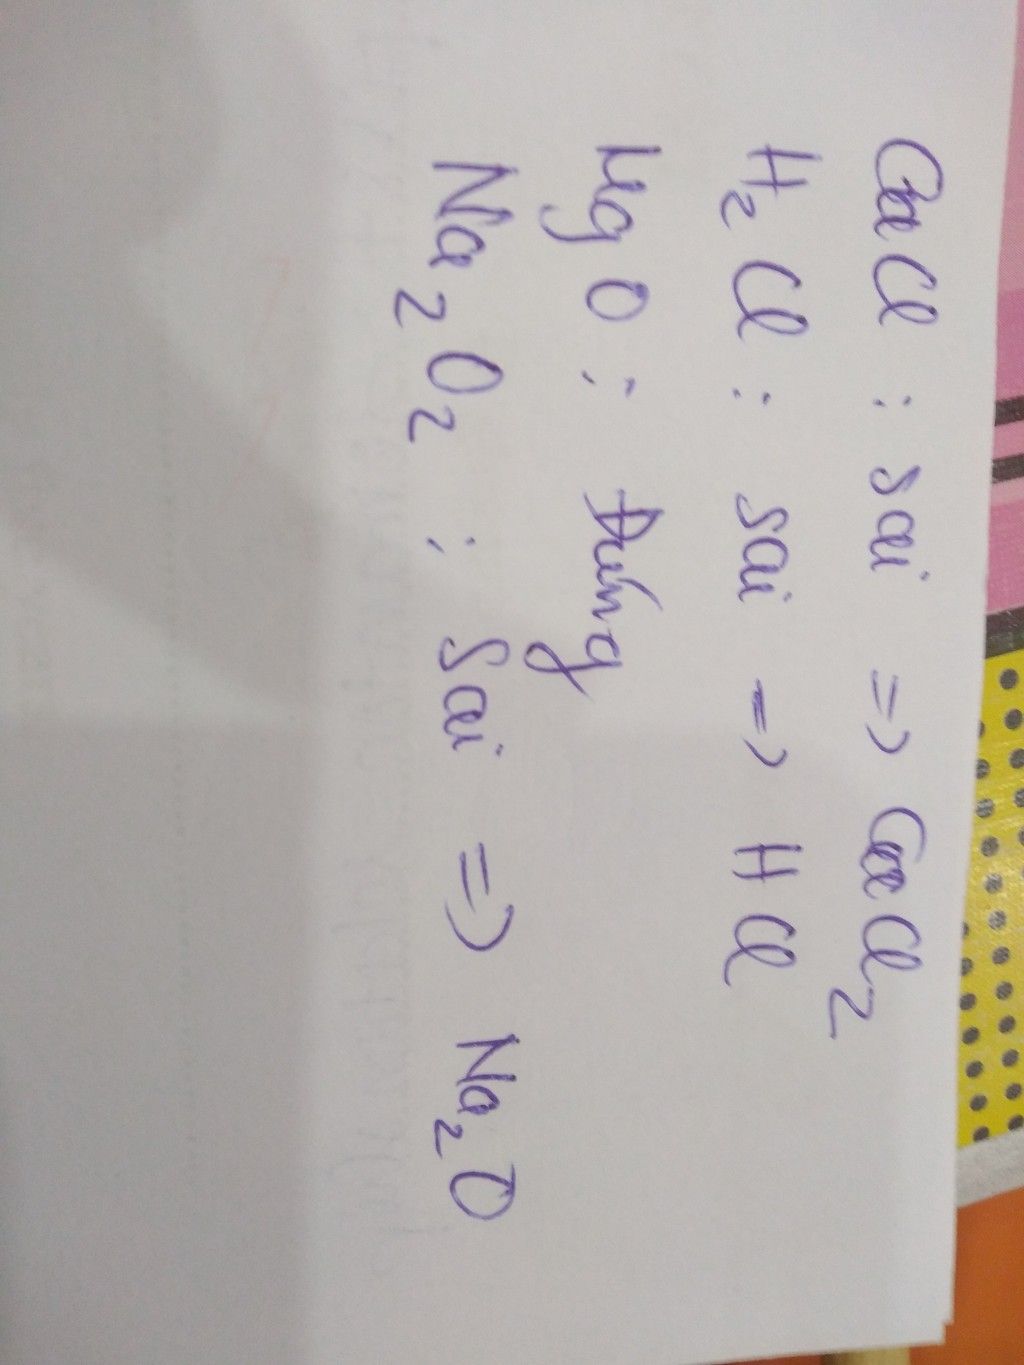 CaCl : sai => CaCl₂
H₂Cl : sai => HCl
HgO : Đúng
Na₂O₂ : Sai => Na₂O